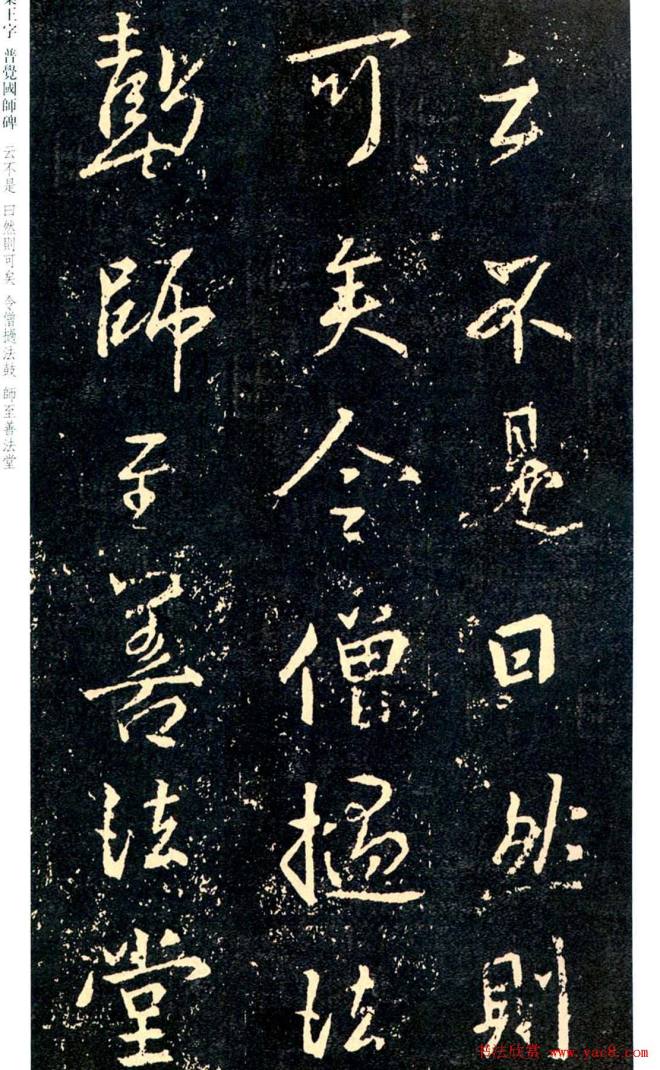 云不是曰然則
可矣令僧撾法
鼓師至善法堂
王字 普覺國師碑 云不是 曰然則可矣 令僧撾法鼓 師至善法堂
书法欣赏 www.yac8.com